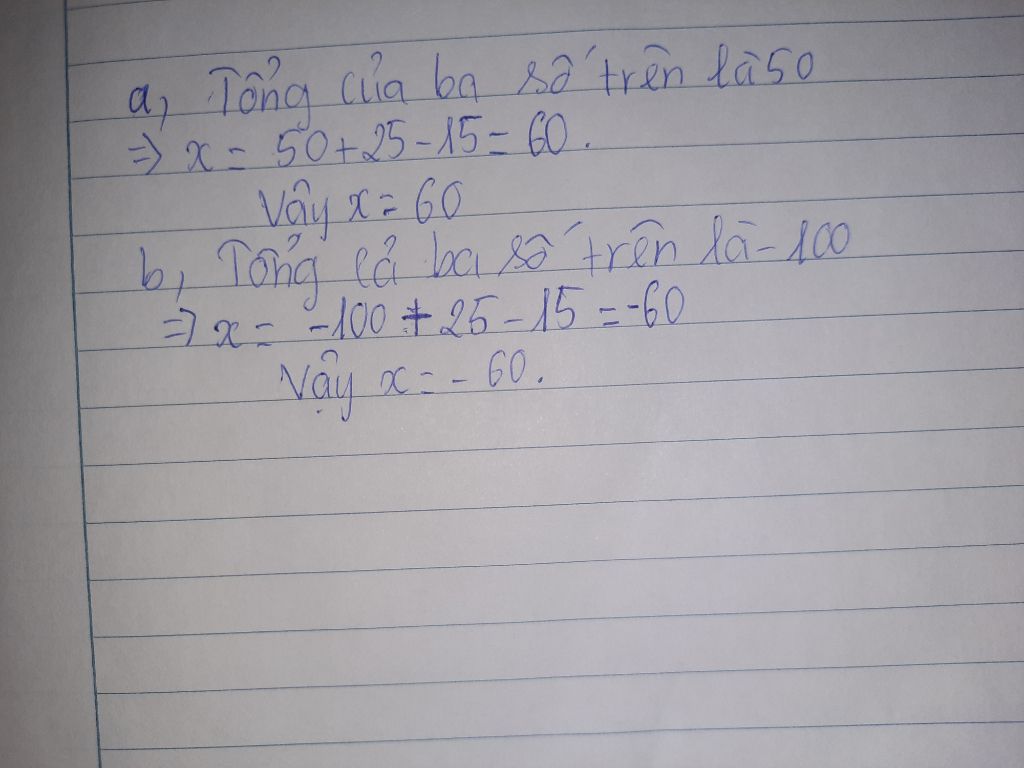 a, Tổng của ba số trên là 50
=> x = 50 + 25 - 15 = 60.
Vây x = 60
b, Tổng cả ba số trên là - 100
=> x = -100 + 25 - 15 = -60
Vậy x = - 60.